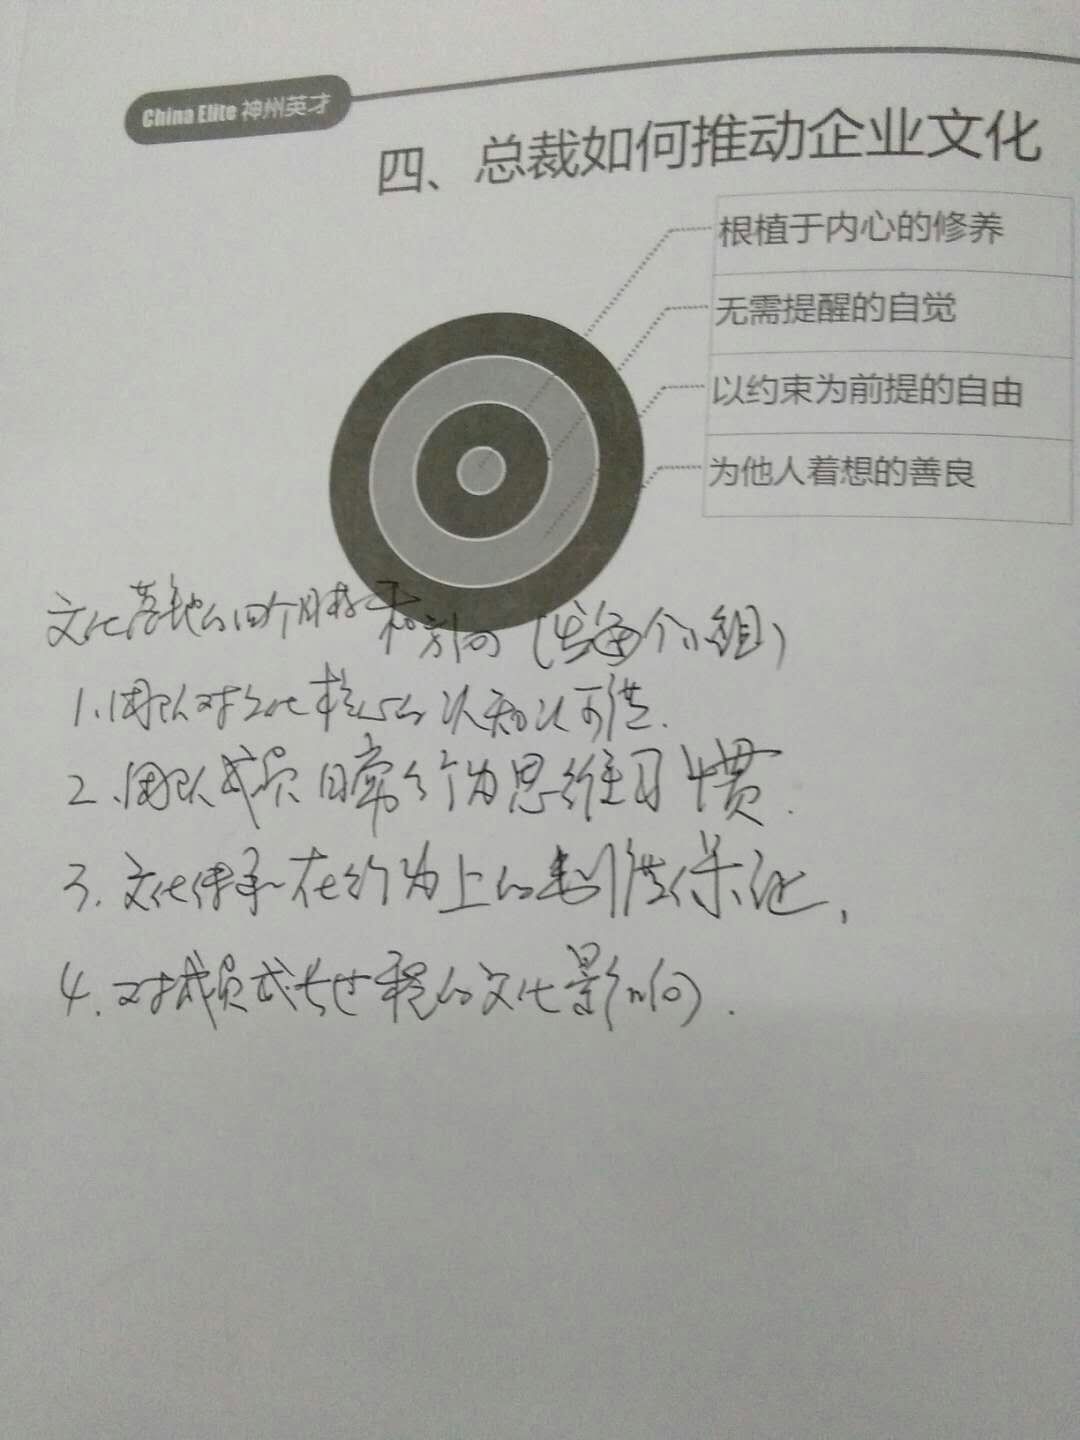 China Elite 神州英才
四、总裁如何推动企业文化
根植于内心的修养
无需提醒的自觉
以约束为前提的自由
为他人着想的善良
文化落地的四个目标和方向（每个小组）
1.团队对文化核心的认知认可性.
2.团队成员日常行为思维习惯.
3.文化传承在行为上的制性保证,
4.对成员成长过程的文化影响.